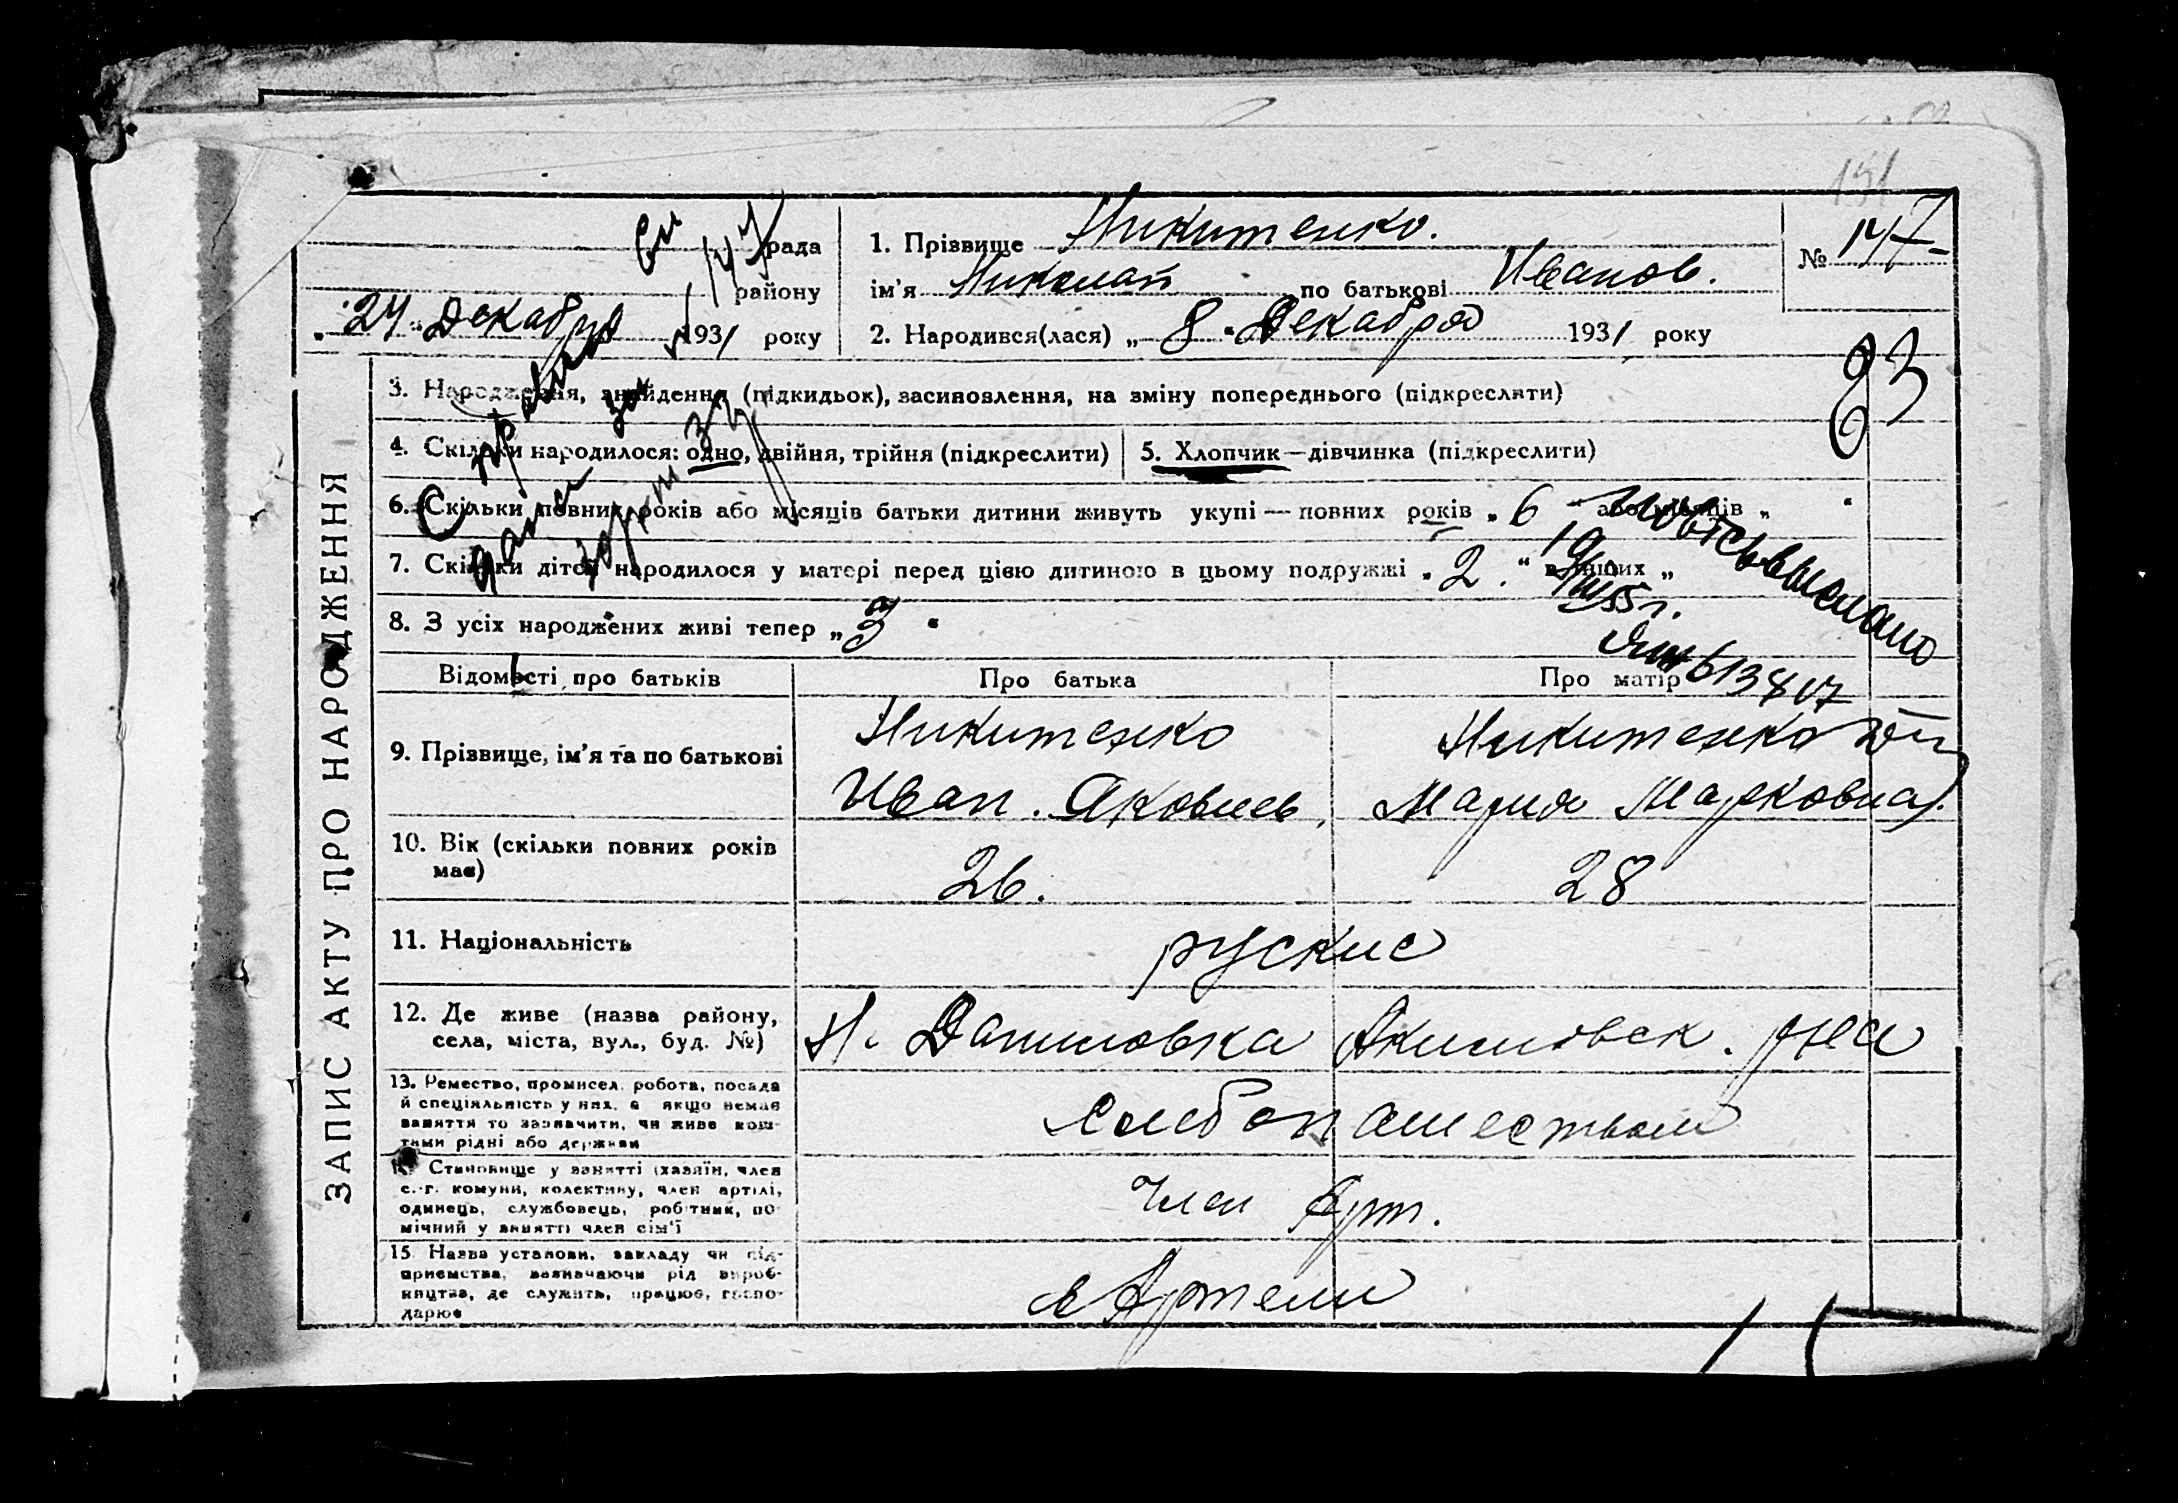 191
вм 147
рада
району
„ 24 “ Декабря 1931 року
1. Прізвище Никитенко.
ім'я Николай по батькові Иванов.
2. Народився(лася) „ 8 “ Декабря 1931 року
№ 147
83
ЗАПИС АКТУ ПРО НАРОДЖЕННЯ
3. Народження, знайдення (підкидьок), засиновлення, на зміну попереднього (підкреслити)
4. Скільки народилося: одно, двійня, трійня (підкреслити)
5. Хлопчик—дівчинка (підкреслити)
6. Скільки повних років або місяців батьки дитини живуть укупі — повних років „ 6 “ або місяців „ “
7. Скільки дітей народилося у матері перед цією дитиною в цьому подружжі „ 2. “ в інших „
8. З усіх народжених живі тепер „ 3 “
Справка
дана за
выслано
55 г.
Відомості про батьків
Про батька
Про матір
9. Прізвище, ім'я та по батькові
Никитенко
Иван. Яковлев.
Никитенко
Мария Марковна.
10. Вік (скільки повних років має)
26.
28
11. Національність
руские
12. Де живе (назва району, села, міста, вул., буд. №)
Н. Даниловка Акимовск. р-на
13. Ремество, промисел, робота, посада
й спеціяльність у них, а якщо немає
заняття то зазначити, чи живе кош-
тами рідні або держави
хлебопашеством
14. Становище у занятті (хазяїн, член
с.-г. комуни, колективу, член артілі,
одинець, службовець, робітник, по-
мічний у занятті член сім'ї
Член Арт.
15. Назва установи, закладу чи під-
приємства, зазначаючи рід вироб-
ництва, де служить, працює, госпо-
дарює
в Артели